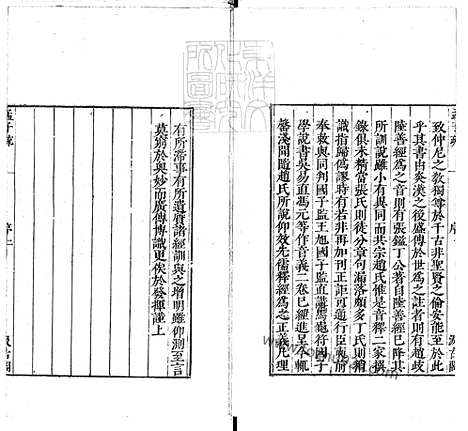 致仲尼之敎獨尊於千古非聖賢之倫安能至於此
乎其書由炎漢之後盛傳於世爲之註者則有趙岐
陸善經爲之音則有張鎰丁公著自陸善經已降其
所訓說雖小有異同而共宗趙氏惟是音釋二家撰
錄俱未精當張氏則徒分章句漏落頗多丁氏則稍
識指歸僞謬時有若非再加刊正詎可通行臣奭前
奉敕與同判國子監王旭國子監直講馬龜符國子
學說書吳易直馮元等作音義二卷已經進呈今輒
罄淺聞隨趙氏所說仰效先儒釋經爲之正義凡理
有所滯事有所遺質諸經訓與之增明雖仰測至言
莫窮於奧妙而廣傳博識更俟於發揮謹上
孟子疏
序二
汲古閣
東洋文
化研究
所圖書